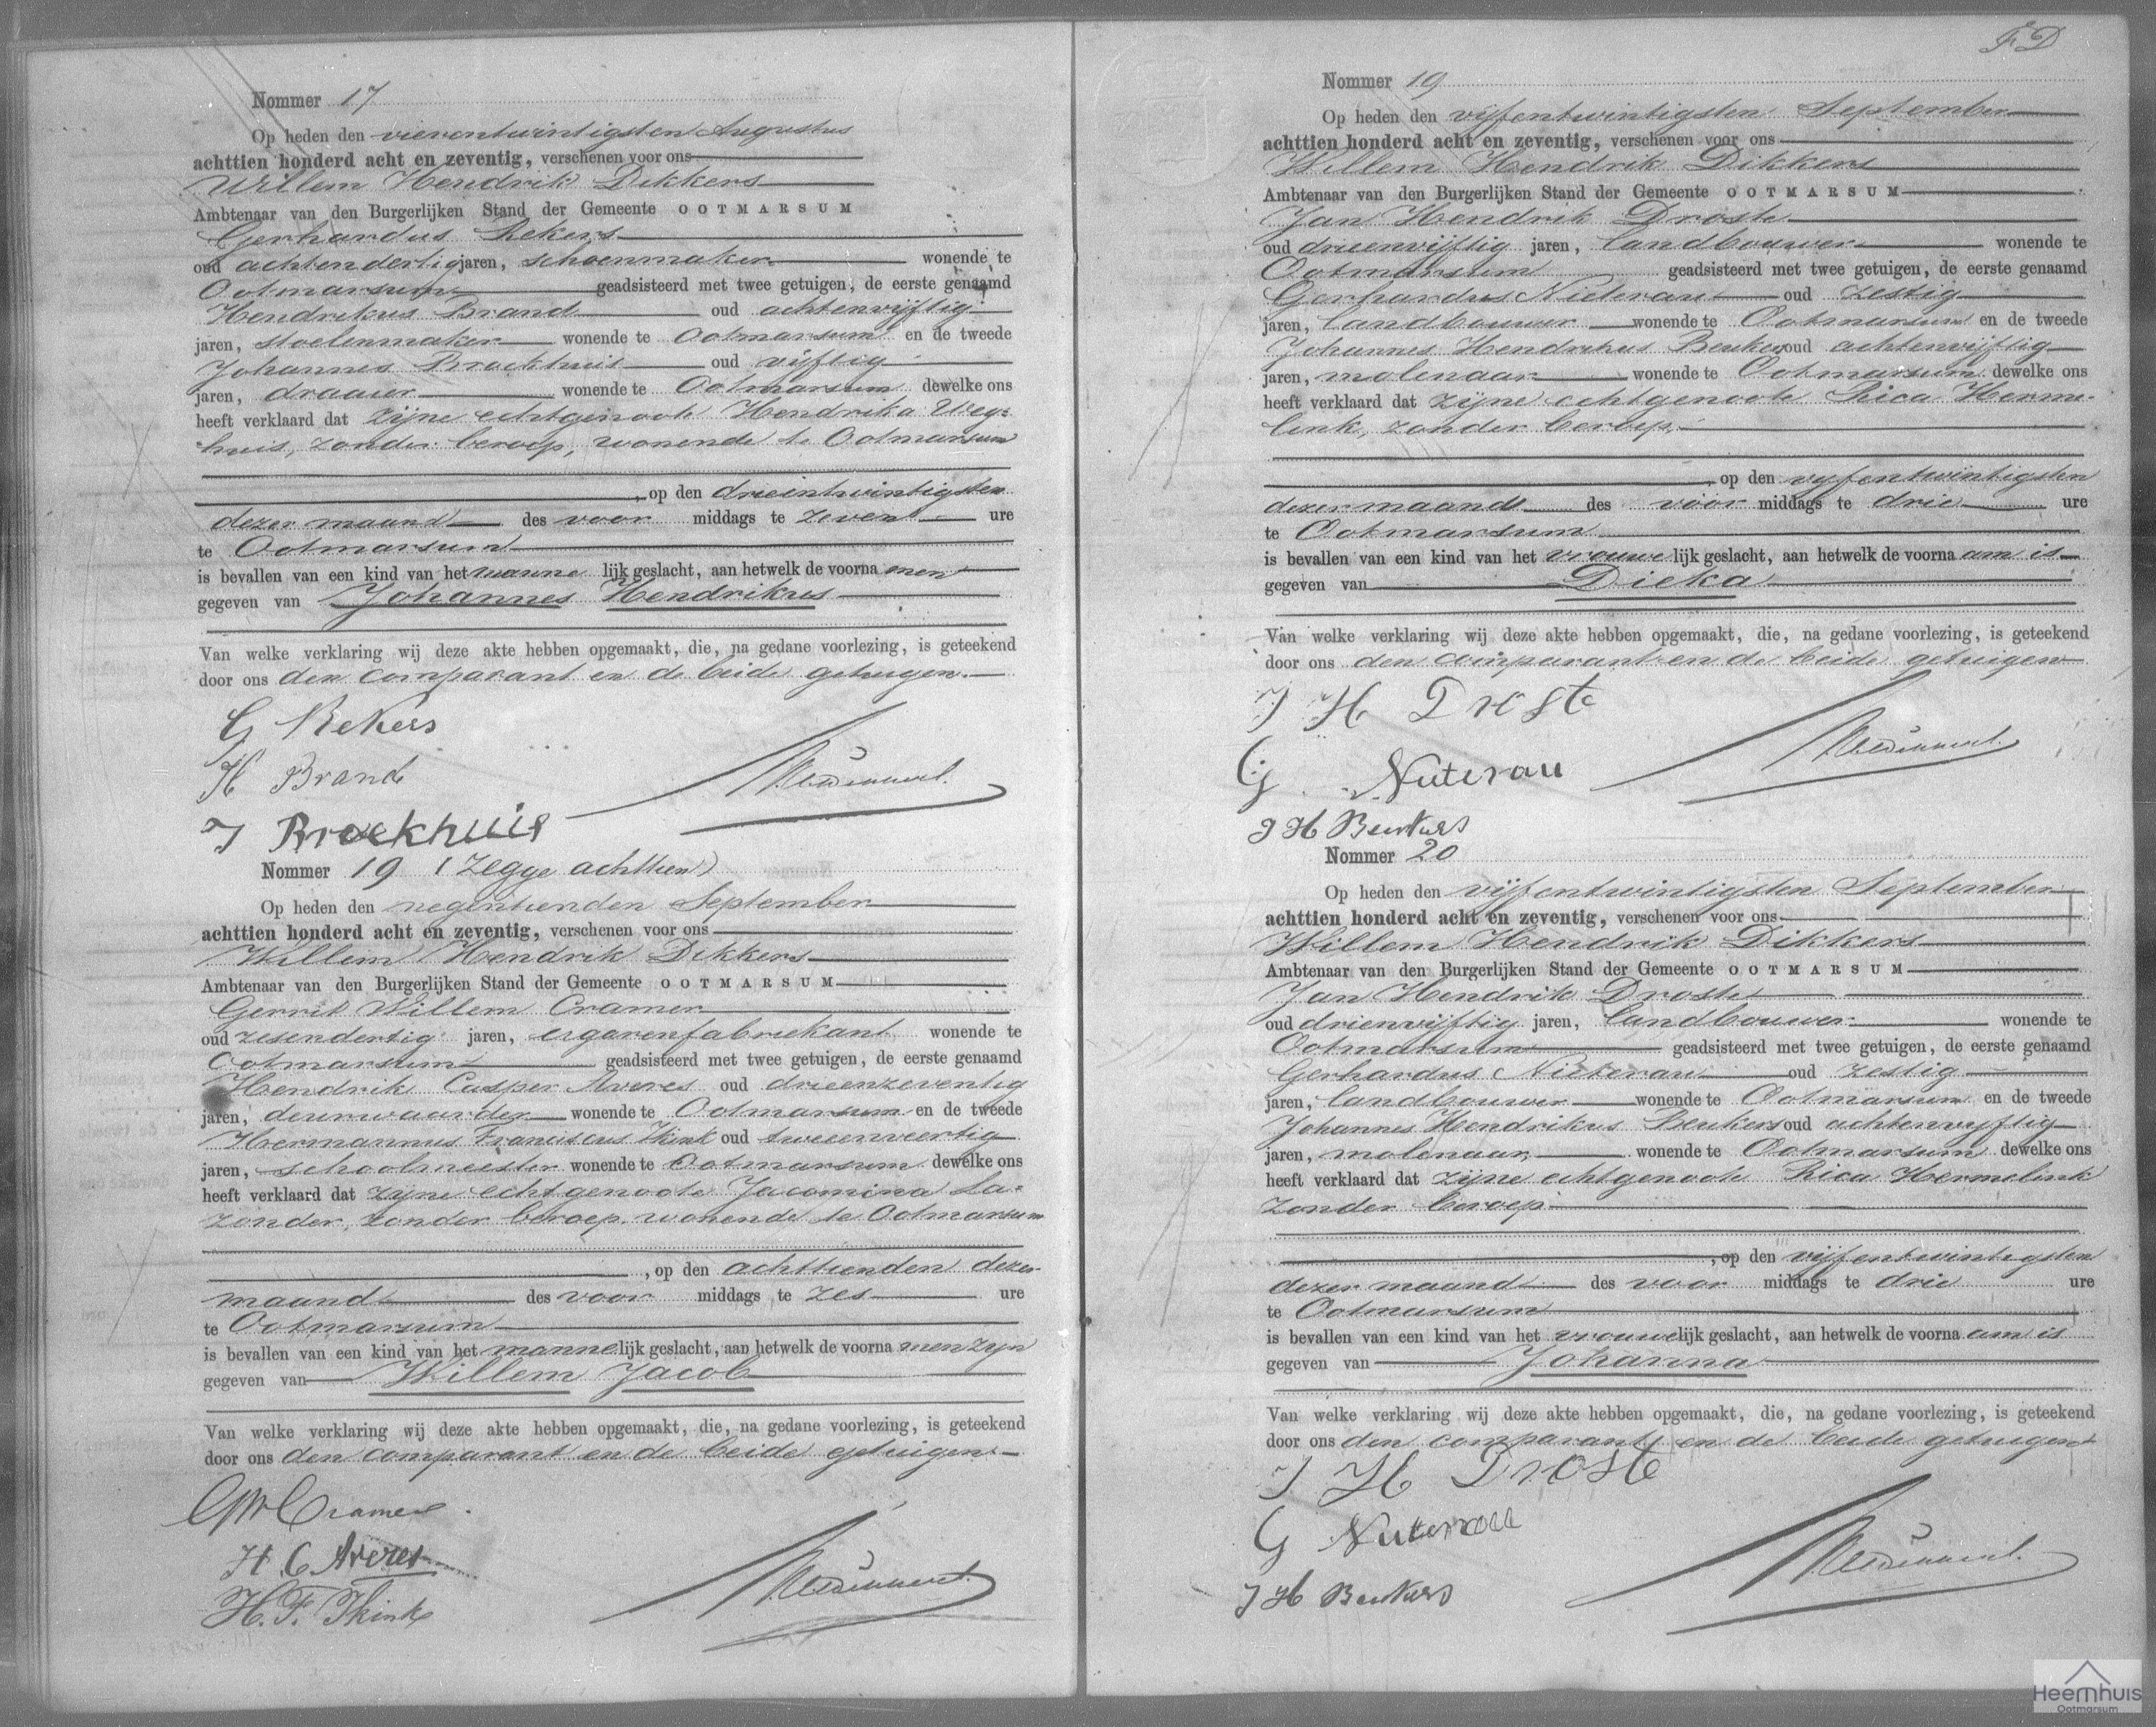 Nommer 17
Op heden den vierentwintigsten Augustus
achttien honderd acht en zeventig, verschenen voor ons
Willem Hendrik Dikkers
Ambtenaar van den Burgerlijken Stand der Gemeente OOTMARSUM
Gerhardus Rekers
oud achtendertig jaren, schoenmaker wonende te
Ootmarsum geadsisteerd met twee getuigen, de eerste genaamd
Hendrikus Brand oud achtenvijftig
jaren, stoelenmaker wonende te Ootmarsum en de tweede
Johannes Broekhuis oud vijftig
jaren, draaier wonende te Ootmarsum dewelke ons
heeft verklaard dat zijne echtgenoote Hendrika Weg=
huis, zonder beroep, wonende te Ootmarsum
, op den drieentwintigsten
dezer maand des voor middags te zeven ure
te Ootmarsum
is bevallen van een kind van het manne lijk geslacht, aan hetwelk de voorna men
gegeven van Johannes Hendrikus
Van welke verklaring wij deze akte hebben opgemaakt, die, na gedane voorlezing, is geteekend
door ons den comparant en de beide getuigen.
G Rekers
H Brand
J Broekhuis
Nommer 19 (zegge achttien)
Op heden den negentienden September
achttien honderd acht en zeventig, verschenen voor ons
Willem Hendrik Dikkers
Ambtenaar van den Burgerlijken Stand der Gemeente OOTMARSUM
Gerrit Willem Cramer
oud zesendertig jaren, cigarenfabriekant wonende te
Ootmarsum geadsisteerd met twee getuigen, de eerste genaamd
Hendrik Casper Averes oud drieenzeventig
jaren, deurwaarder wonende te Ootmarsum en de tweede
Hermannus Franciscus Ikink oud tweeenveertig
jaren, schoolmeester wonende te Ootmarsum dewelke ons
heeft verklaard dat zijne echtgenoote Jacomina La=
zonder, zonder beroep, wonende te Ootmarsum
, op den achttienden dezer
maand des voor middags te zes ure
te Ootmarsum
is bevallen van een kind van het manne lijk geslacht, aan hetwelk de voorna men zijn
gegeven van Willem Jacob
Van welke verklaring wij deze akte hebben opgemaakt, die, na gedane voorlezing, is geteekend
door ons den comparant en de beide getuigen.
GW Cramer
H. C Averes
H. F. Ikink
FD
Nommer 19
Op heden den vijfentwintigsten September
achttien honderd acht en zeventig, verschenen voor ons
Willem Hendrik Dikkers
Ambtenaar van den Burgerlijken Stand der Gemeente OOTMARSUM
Jan Hendrik Droste
oud drieenvijftig jaren, landbouwer wonende te
Ootmarsum geadsisteerd met twee getuigen, de eerste genaamd
Gerhardus Nieterau oud zestig
jaren, landbouwer wonende te Ootmarsum en de tweede
Johannes Hendrikus Beukers oud achtenvijftig
jaren, molenaar wonende te Ootmarsum dewelke ons
heeft verklaard dat zijne echtgenoote Rica Herme-
link, zonder beroep,
, op den vijfentwintigsten
dezer maand des voor middags te drie ure
te Ootmarsum
is bevallen van een kind van het vrouwe lijk geslacht, aan hetwelk de voorna am is
gegeven van Dieka
Van welke verklaring wij deze akte hebben opgemaakt, die, na gedane voorlezing, is geteekend
door ons den comparant en de beide getuigen
J H Droste
G Nieterau
J H Beukers
Nommer 20
Op heden den vijfentwintigsten September
achttien honderd acht en zeventig, verschenen voor ons
Willem Hendrik Dikkers
Ambtenaar van den Burgerlijken Stand der Gemeente OOTMARSUM
Jan Hendrik Droste
oud drienvijftig jaren, landbouwer wonende te
Ootmarsum geadsisteerd met twee getuigen, de eerste genaamd
Gerhardus Nieterau oud zestig
jaren, landbouwer wonende te Ootmarsum en de tweede
Johannes Hendrikus Beukers oud achtenvyftig
jaren, molenaar, wonende te Ootmarsum dewelke ons
heeft verklaard dat zijne echtgenoote Rica Hermelink
zonder beroep
, op den vijfentwintigsten
dezer maand des voor middags te drie ure
te Ootmarsum
is bevallen van een kind van het vrouwe lijk geslacht, aan hetwelk de voorna am is
gegeven van Johanna
Van welke verklaring wij deze akte hebben opgemaakt, die, na gedane voorlezing, is geteekend
door ons den comparant en de beide getuigen
J H Droste
G Nieterau
J H Beukers
Heemhuis
Ootmarsum